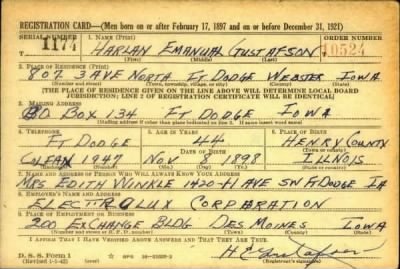 REGISTRATION CARD—(Men born on or after February 17, 1897 and on or before December 31, 1921)
SERIAL NUMBER 1. NAME (Print) ORDER NUMBER
1174 HARLAN EMANUAL GUSTAFSON 10524
(First) (Middle) (Last)
2. PLACE OF RESIDENCE (Print)
807 3 AVE NORTH FT DODGE WEBSTER IOWA
(Number and street) (Town, township, village, or city) (County) (State)
[THE PLACE OF RESIDENCE GIVEN ON THE LINE ABOVE WILL DETERMINE LOCAL BOARD
JURISDICTION; LINE 2 OF REGISTRATION CERTIFICATE WILL BE IDENTICAL]
3. MAILING ADDRESS
PO BOX 134 FT DODGE IOWA
[Mailing address if other than place indicated on line 2. If same insert word same]
4. TELEPHONE 5. AGE IN YEARS 6. PLACE OF BIRTH
FT DODGE 44 HENRY COUNTY
DATE OF BIRTH
1947 NOV 8 1898 ILLINOIS
7. NAME AND ADDRESS OF PERSON WHO WILL ALWAYS KNOW YOUR ADDRESS
MRS EDITH WINKLE 1420-H AVE SN FT DODGE IA
8. EMPLOYER'S NAME AND ADDRESS
ELECTROLUX CORPORATION
9. PLACE OF EMPLOYMENT OR BUSINESS
200 EXCHANGE BLDG DES MOINES IOWA
(Number and street or R. F. D. number) (Town) (County) (State)
I AFFIRM THAT I HAVE VERIFIED ABOVE ANSWERS AND THAT THEY ARE TRUE.
D. S. S. Form 1
(Revised 1-1-42)